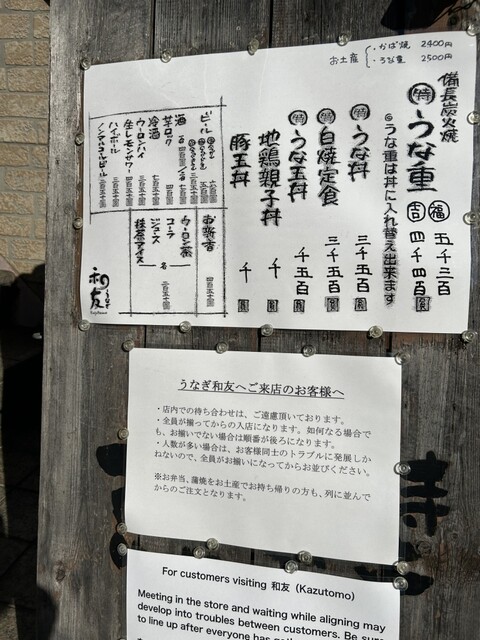 お土産
・かば焼 2400円
・うな重 2500円
備長炭火焼
㊕うな重
㊗福 五千二百
吉 四千四百円
◎うな重は丼に入れ替え出来ます
㊕うな丼 三千五百円
㊕白焼定食 三千五百円
㊕うな玉丼 千五百円
地鶏親子丼 千円
豚玉丼 千円
ビール
酒
芋ロック
冷酒
ウーロンハイ
生レモンサワー
ハイボール
ノンアルコールビール
お新香 四百五十円
ウーロン茶
コーラ
ジュース
各 二百五十円
抹茶アイス
うなぎ
和友
うなぎ和友へご来店のお客様へ
・店内での待ち合わせは、ご遠慮頂いております。
・全員が揃ってからの入店になります。如何なる場合で
も、お揃いでない場合は順番が後ろになります。
・人数が多い場合は、お客様同士のトラブルに発展しか
ねないので、全員がお揃いになってからお並びください。
※お弁当、蒲焼をお土産でお持ち帰りの方も、列に並んで
からのご注文となります。
For customers visiting 和友 (Kazutomo)
Meeting in the store and waiting while aligning may
develop into troubles between customers. Be sure
to line up after everyone has